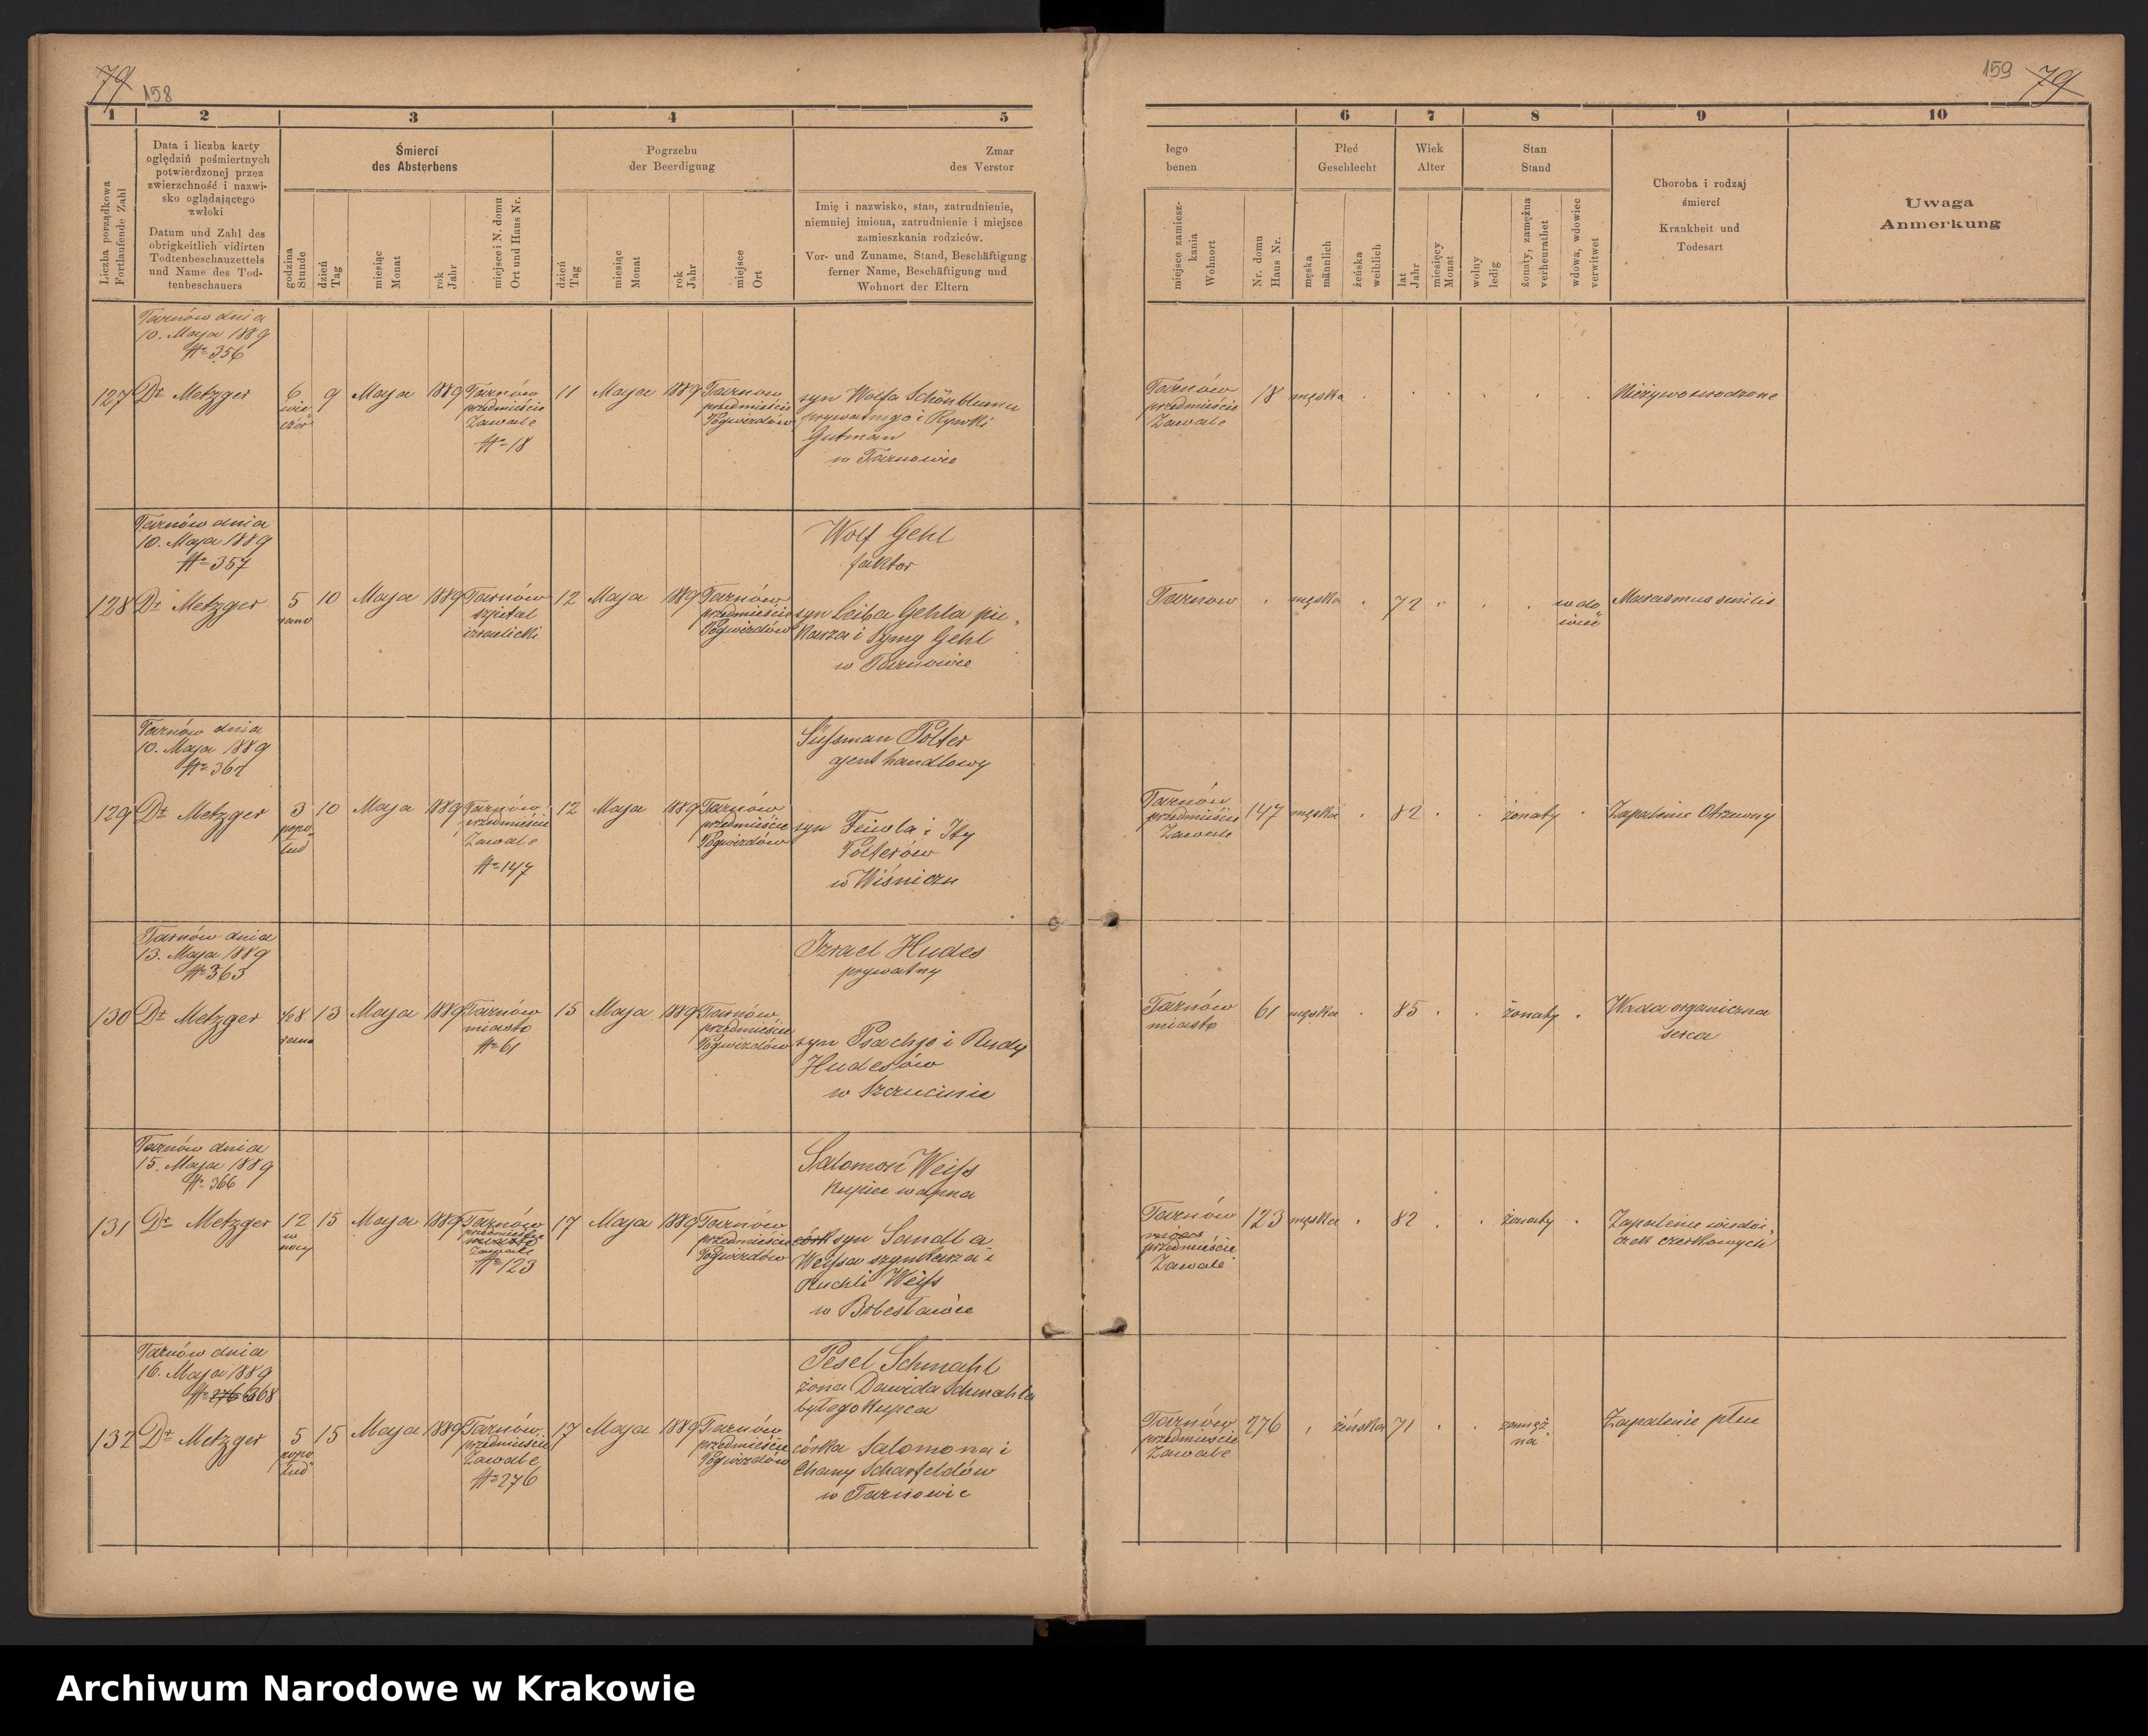 79
158
159
79
1
2
3
4
5
6
7
8
9
10
Liczba porządkowa
Fortlaufende Zahl
Data i liczba karty
oględzin pośmiertnych
potwierdzonej przez
zwierzchność i nazwi-
sko oglądającego
zwłoki
Datum und Zahl des
obrigkeitlich vidirten
Todtenbeschauzettels
und Name des Tod-
tenbeschauers
Śmierci
des Absterbens
godzina
Stunde
dzień
Tag
miesiąc
Monat
rok
Jahr
miejsce i N. domu
Ort und Haus Nr.
Pogrzebu
der Beerdigung
dzień
Tag
miesiąc
Monat
rok
Jahr
miejsce
Ort
Zmar
des Verstor
Imię i nazwisko, stan, zatrudnienie,
niemniej imiona, zatrudnienie i miejsce
zamieszkania rodziców.
Vor- und Zuname, Stand, Beschäftigung
ferner Name, Beschäftigung und
Wohnort der Eltern
łego
benen
miejsce zamiesz-
kania
Wohnort
Nr. domu
Haus Nr.
Płeć
Geschlecht
męska
männlich
żeńska
weiblich
Wiek
Alter
lat
Jahr
miesięcy
Monat
Stan
Stand
wolny
ledig
żonaty, zamężna
verheurathet
wdowa, wdowiec
verwitwet
Choroba i rodzaj
śmierci
Krankheit und
Todesart
Uwaga
Anmerkung
127
Tarnów dnia
10. Maja 1889
№ 356
Dr Metzger
6
wie„
czór
9
Maja
1889
Tarnów
przedmieście
Zawale
№ 18
11
Maja
1889
Tarnów
przedmieście
Pogwizdów
syn Wolfa Schönbluma
prywatnego i Rywki
Gutman
w Tarnowie
Tarnów
przedmieście
Zawale
18
męska
Nieżywo urodzone
128
Tarnów dnia
10. Maja 1889
№ 357
Dr Metzger
5
rano
10
Maja
1889
Tarnów
szpital
izraelicki
12
Maja
1889
Tarnów
przedmieście
Pogwizdów
Wolf Gehl
faktor
syn Leiba Gehla pie„
karza i Symy Gehl
w Tarnowie
Tarnow
męska
72
wdo„
wiec
Marasmus senilis
129
Tarnów dnia
10. Maja 1889
Dr Metzger
3
popo„
łud
10
Maja
1889
Tarnów
przedmieście
Zawale
№ 147
12
Maja
1889
Tarnów
przedmieście
Pogwizdów
Süssman Polter
ajent handlowy
syn Feiwla i Ity
Polterów
w Wiśniczu
Tarnów
przedmieście
Zawale
147
męska
82
żonaty
Zapalenie Otrzewny
130
Tarnów dnia
13. Maja 1889
№ 363
Dr Metzger
½8
rano
13
Maja
1889
Tarnów
miasto
№ 61
15
Maja
1889
Tarnów
przedmieście
Pogwizdów
Izrael Hudes
prywatny
syn Psachje i Rudy
Hudesów
w Szczucinie
Tarnów
miasto
61
męska
85
żonaty
Wada organiczna
serca
131
Tarnów dnia
15. Maja 1889
№ 366
Dr Metzger
12
w
nocy
15
Maja
1889
Tarnów
przedmieście
miasto
Zawale
№ 123
17
Maja
1889
Tarnów
przedmieście
Pogwizdów
Salomon Weiss
kupiec wapna
córk syn Sandla
Weissa szynkarza i
Ruchli Weiss
w
Tarnów
przedmieście
Zawale
123
męska
82
żonaty
Zapalenie
132
Tarnów dnia
16. Maja 1889
№ 276 368
Dr Metzger
5
popo„
łud
15
Maja
1889
Tarnów
przedmieście
Zawale
№ 276
17
Maja
1889
Tarnów
przedmieście
Pogwizdów
Pesel Schmahl
żona Dawida Schmahla
byłego kupca
córka Salomona i
Chany Scharfeldów
w Tarnowie
Tarnów
przedmieście
Zawale
276
żeńska
71
zamęż„
na
Zapalenie płuc
Archiwum Narodowe w Krakowie